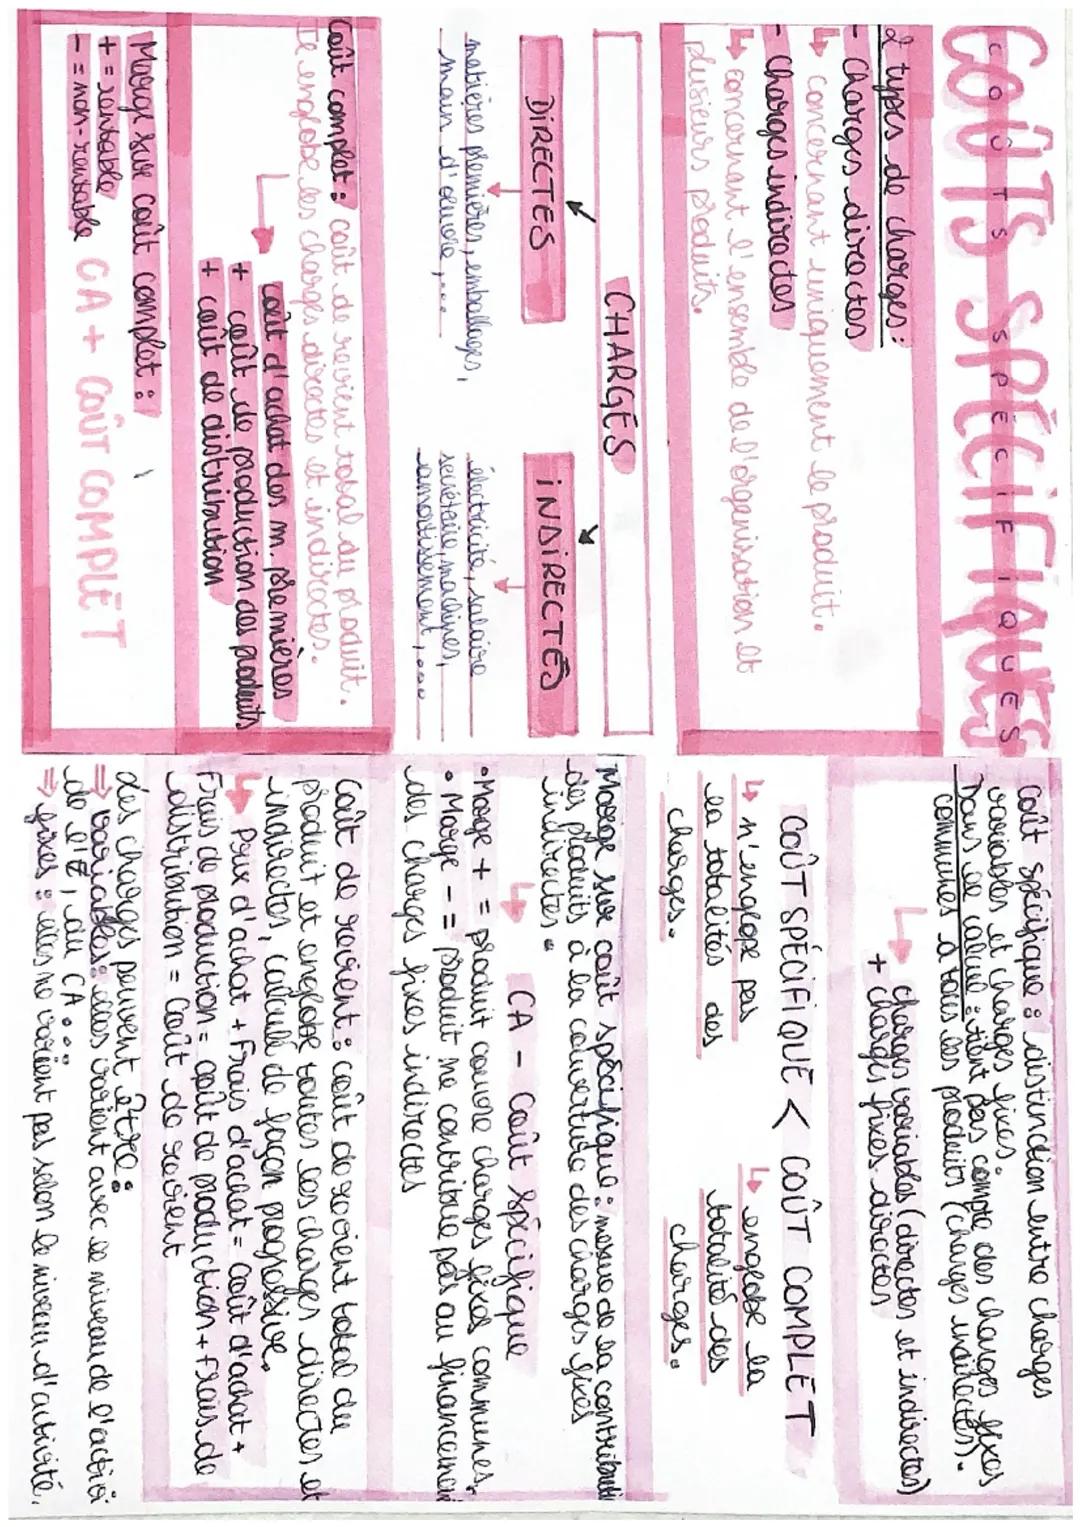 COÛTS SPÉCIFIQUES
COÛTS SPÉCIFIQUES
2 types de charges :
- Charges directes
↳ concernant uniquement le produit.
- Charges indirectes
↳ concernant l'ensemble de l'organisation et
plusieurs produits.
CHARGES
DIRECTES
matières premières, emballages,
main d'œuvre, ....
INDIRECTES
électricité, salaire
secrétaire, machines,
amortissement, ....
Coût complet : coût de revient total du produit.
Il englobe les charges directes et indirectes.
↳ coût d'achat des m. premières
+ coût de production des produits
+ coût de distribution
Marge sur coût complet :
+ = rentable
- = non-rentable
CA + COÛT COMPLET
Coût spécifique : distinction entre charges
variables et charges fixes.
Dans ce calcul : tient pas compte des charges fixes
communes à tous les produits (charges indirectes).
↳ charges variables (directes et indirectes)
+ charges fixes directes
COÛT SPÉCIFIQUE < COÛT COMPLET
↳ n'englobe pas
la totalités des
charges.
↳ englobe la
totalité des
charges.
Marge sur coût spécifique : mesure de la contributi
des produits à la couverture des charges fixes
indirectes.
↳ CA - Coût spécifique
• Marge + = produit couvre charges fixes communes.
• Marge - = produit ne contribue pas au financemen
des charges fixes indirectes
Coût de revient : coût de revient total du
produit et englobe toutes les charges directes et
indirectes, calculé de façon progressive.
↳ Prix d'achat + Frais d'achat = Coût d'achat +
Frais de production = coût de production + frais de
distribution = Coût de revient
Les charges peuvent être :
⇒ variables : elles varient avec le niveau de l'activi
de l'E, du CA ...
⇒ fixes : elles ne varient pas selon le niveau d'activité.